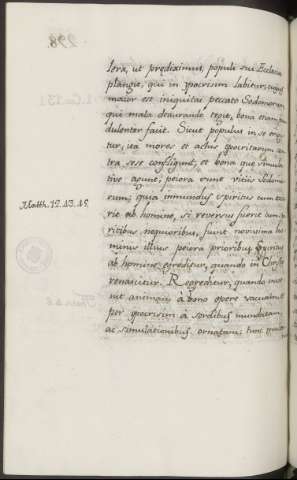 298.
lera, ut prædiximus, populi sui Ecclesia
plangit, qui in ypocrisim labitur, cujus
maior est iniquitas peccato Sodomorum,
qui mala deaurando tegit, bona etiam frau
dulenter facit. Sicut populus in se erigi
tur, ita mores et actus ypocritarum con
tra sese confligunt, et bona que simula
tive agunt, peiora erunt vitiis Sodomo
rum; quia immundus spiritus cum exie
rit ab homine, si reversus fuerit cum spi
ritibus nequioribus, fiunt novissima ho
minis illius peiora prioribus. Spiritus
ab homine egreditur, quando in Christo
renascitur. Regreditur, quando inve
nit animam à bono opere vacuam et
per ypocrisim à sordibus mundatam,
ac simulationibus ornatam; tunc
Matth. 12. 43. 45